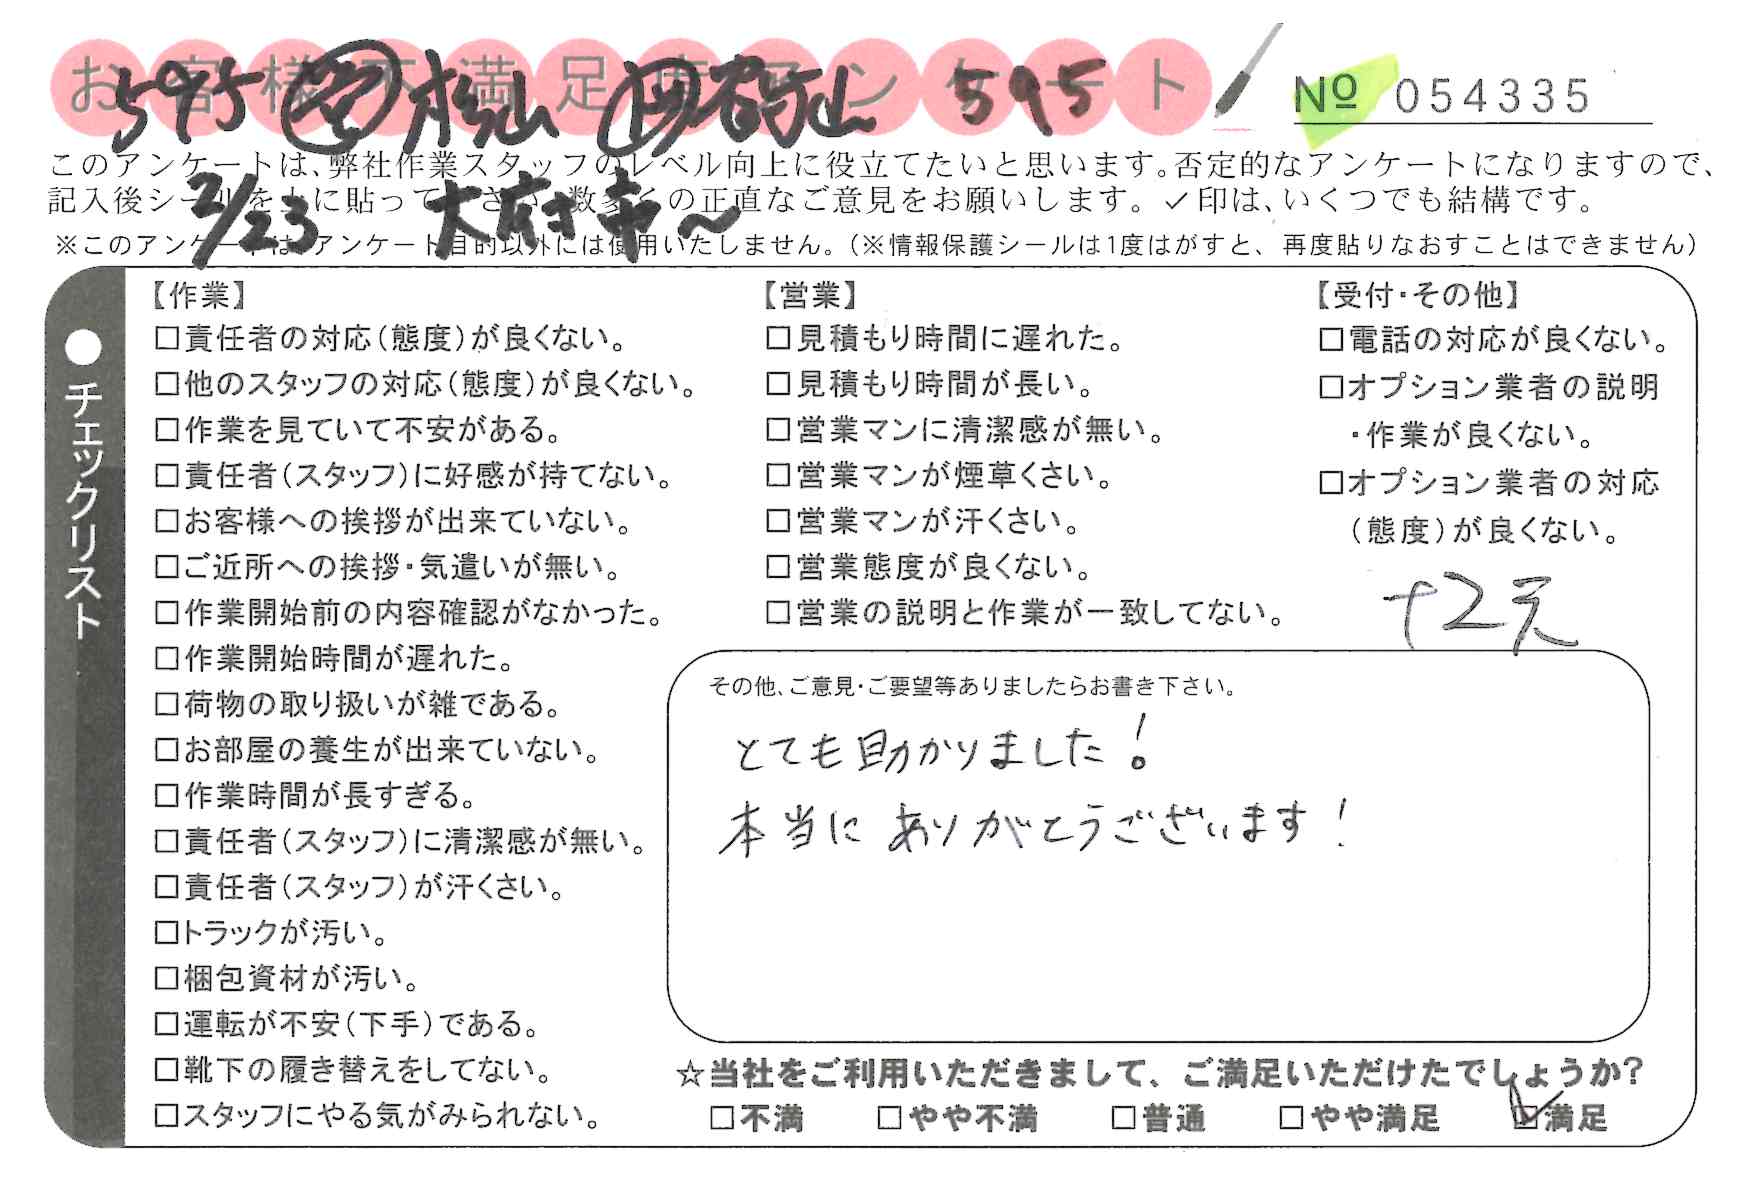 お客様不満足度アンケート
595 松山 595
№ 054335
このアンケートは、弊社作業スタッフのレベル向上に役立てたいと思います。否定的なアンケートになりますので、
記入後シールを上に貼って下さい。数多くの正直なご意見をお願いします。✓印は、いくつでも結構です。
2/23 大府市〜
※このアンケートは、アンケート目的以外には使用いたしません。(※情報保護シールは1度はがすと、再度貼りなおすことはできません)
●チェックリスト
【作業】
□責任者の対応(態度)が良くない。
□他のスタッフの対応(態度)が良くない。
□作業を見ていて不安がある。
□責任者(スタッフ)に好感が持てない。
□お客様への挨拶が出来ていない。
□ご近所への挨拶・気遣いが無い。
□作業開始前の内容確認がなかった。
□作業開始時間が遅れた。
□荷物の取り扱いが雑である。
□お部屋の養生が出来ていない。
□作業時間が長すぎる。
□責任者(スタッフ)に清潔感が無い。
□責任者(スタッフ)が汗くさい。
□トラックが汚い。
□梱包資材が汚い。
□運転が不安(下手)である。
□靴下の履き替えをしてない。
□スタッフにやる気がみられない。
【営業】
□見積もり時間に遅れた。
□見積もり時間が長い。
□営業マンに清潔感が無い。
□営業マンが煙草くさい。
□営業マンが汗くさい。
□営業態度が良くない。
□営業の説明と作業が一致してない。
【受付・その他】
□電話の対応が良くない。
□オプション業者の説明
・作業が良くない。
□オプション業者の対応
(態度)が良くない。
その他、ご意見・ご要望等ありましたらお書き下さい。
とても助かりました!
本当にありがとうございます!
☆当社をご利用いただきまして、ご満足いただけたでしょうか?
□不満 □やや不満 □普通 □やや満足 ☑満足